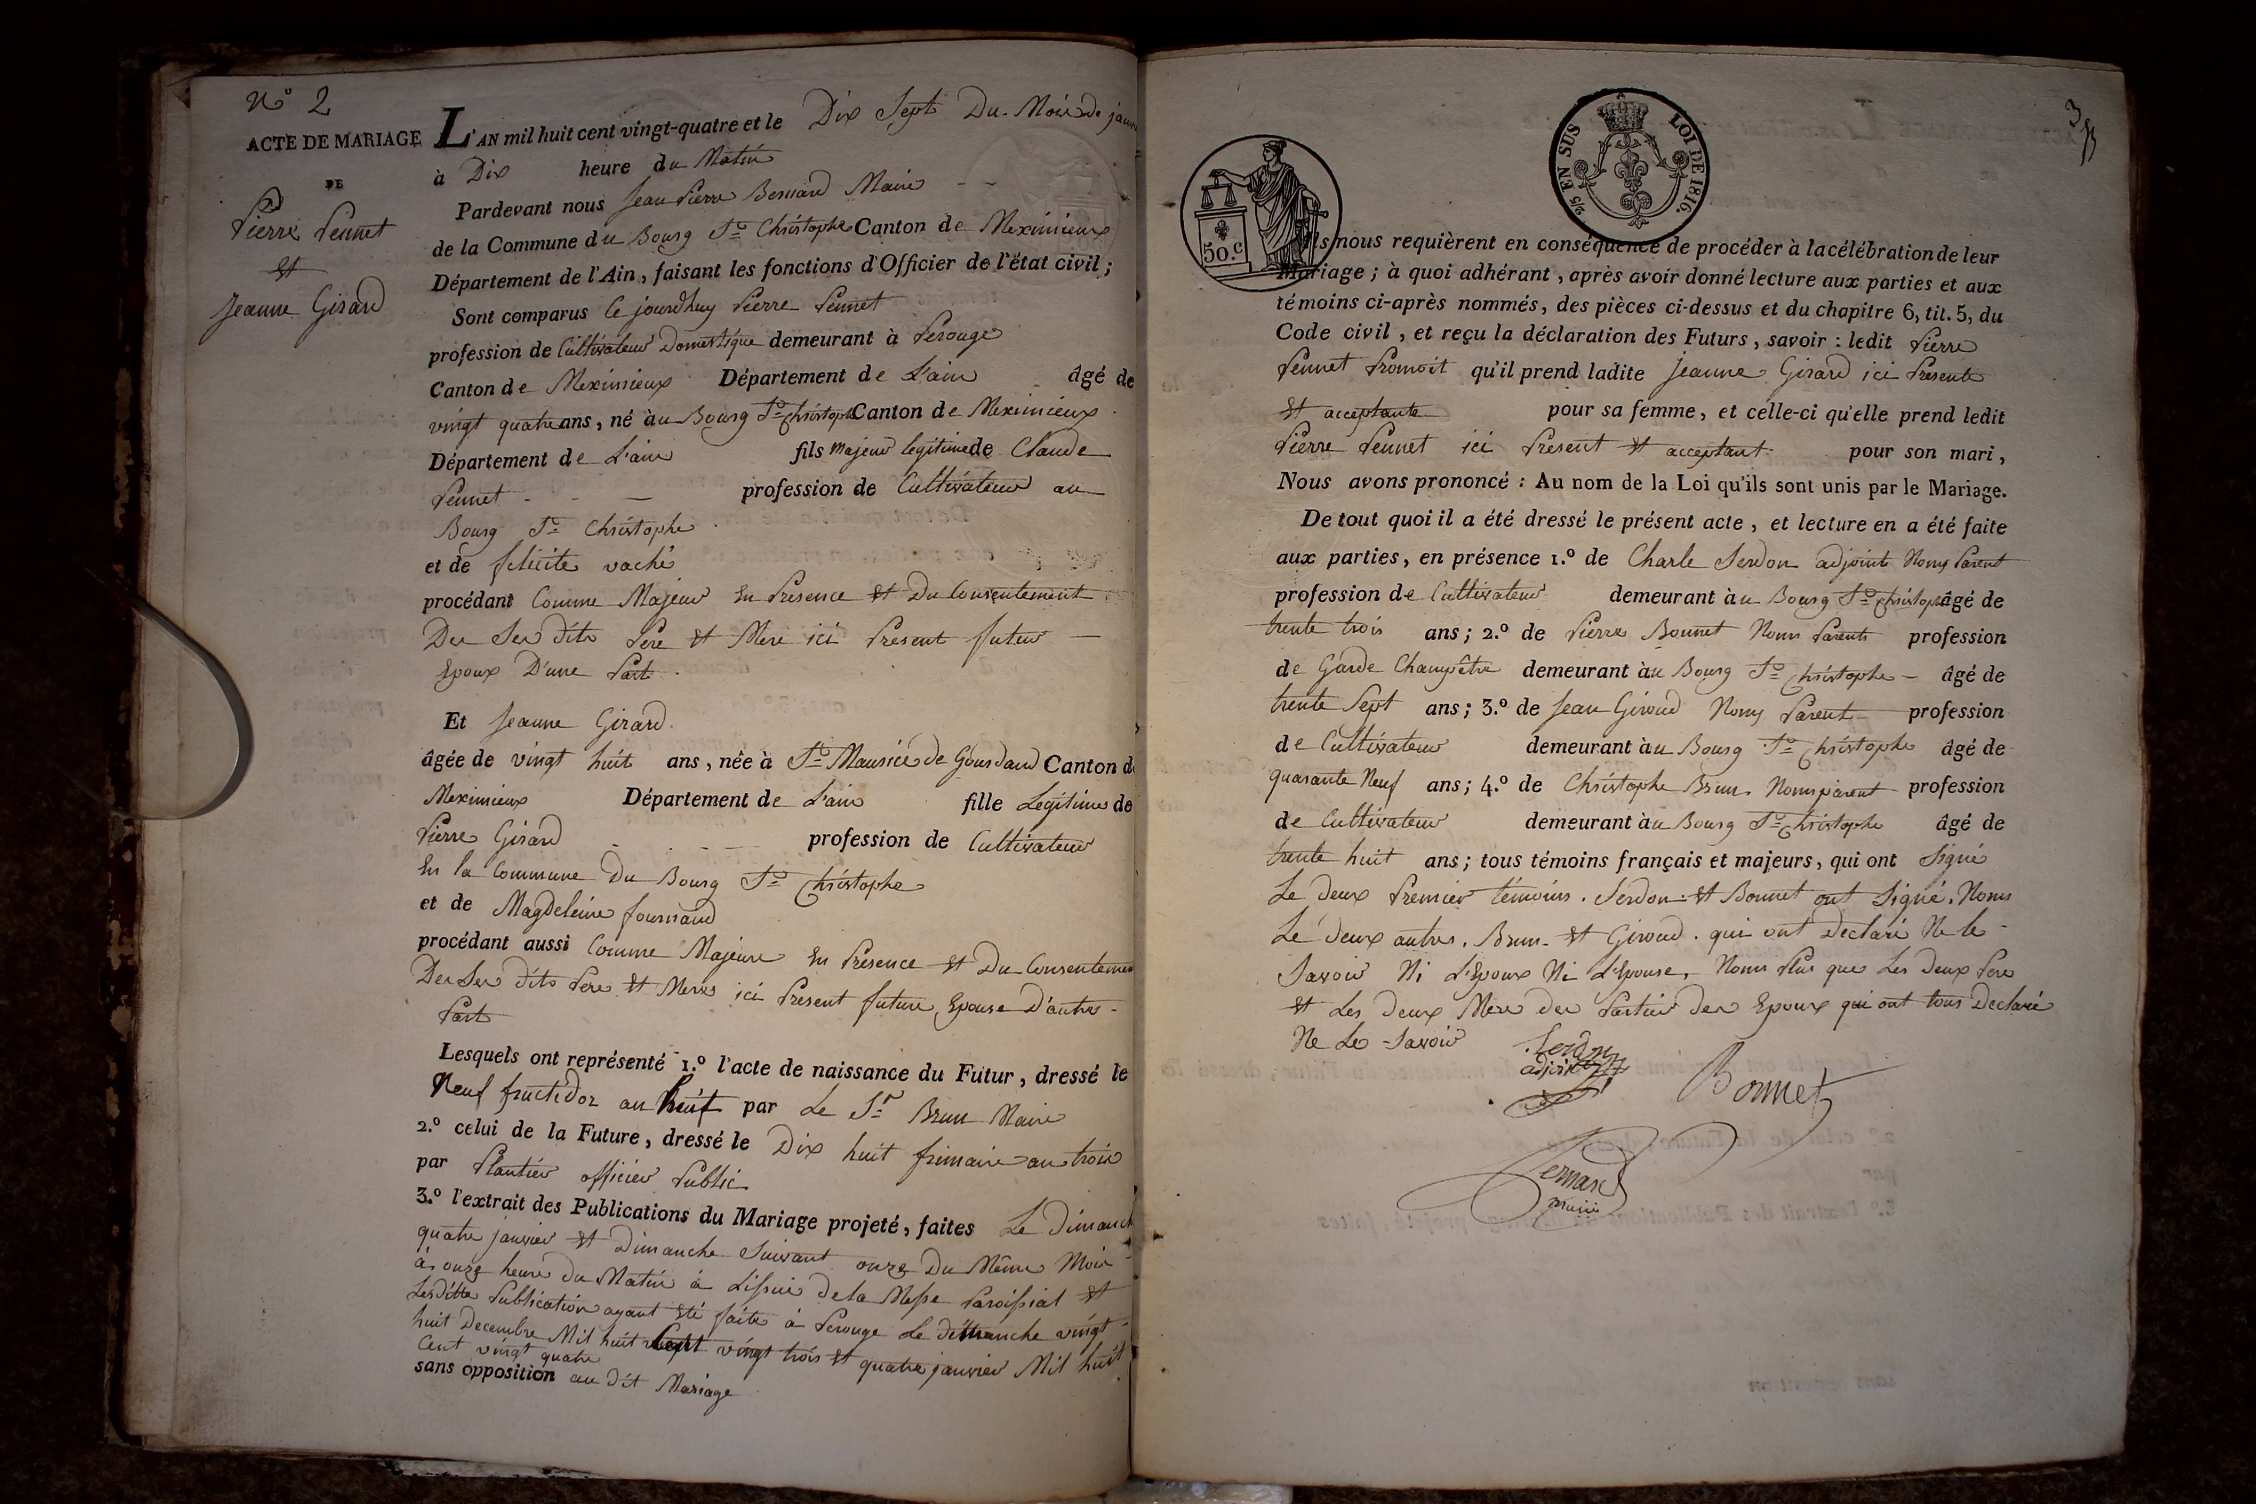 N.º 2
ACTE DE MARIAGE
DE
Pierre Pennet
Et
Jeanne Girard
L'AN mil huit cent vingt-quatre et le Dix Sept Du Mois de janv
à Dix heure du Matin
Pardevant nous Jean Pierre Bernard Maire
de la Commune du Bourg St Christophe Canton de Meximieux
Département de l'Ain, faisant les fonctions d'Officier de l'état civil ;
Sont comparus Ce jourdhuy Pierre Pennet
profession de Cultivateur Domestique demeurant à Perouge
Canton de Meximieux Département de L'ain âgé de
vingt quatre ans, né au Bourg St Christophe Canton de Meximieux
Département de L'ain fils Majeur legitime de Claude
Pennet profession de Cultivateur au
Bourg St Christophe
et de felicite vaché
procédant Comme Majeur En Presence Et Du Consentement
Des Ses dits Pere Et Mere ici Present futur
Epoux D'une Part
Et Jeanne Girard
âgée de vingt huit ans, née à St Maurice de Gourdand Canton de
Meximieux Département de L'ain fille Legitime de
Pierre Girard profession de Cultivateur
En la Commune Du Bourg St Christophe
et de Magdeleine fournand
procédant aussi Comme Majeure En Presence Et Du Consenteme
Des Ses dits Pere Et Meres ici Present future Epouse D'autre
Part
Lesquels ont représenté 1.º l'acte de naissance du Futur, dressé le
Neuf fructidor an huit par Le Sr Brun Maire
2.º celui de la Future, dressé le Dix huit frimaire an trois
par Plantier officier Public
3.º l'extrait des Publications du Mariage projeté, faites Le Dimanch
quatre janvier Et Dimanche Suivant onze Du Même Mois
à onze heure du Matin à L'issue de la Messe Paroissial Et
Lesditte Publication ayant Eté faite à Perouge Le Dimanche vingt
huit Decembre Mil huit Cent vingt trois Et quatre janvier Mil huit
Cent vingt quatre
sans opposition au dit Mariage
3
50.C
2/5 EN SUS LOI DE 1816.
Ils nous requièrent en conséquence de procéder à la célébration de leur
Mariage ; à quoi adhérant, après avoir donné lecture aux parties et aux
témoins ci-après nommés, des pièces ci-dessus et du chapitre 6, tit. 5, du
Code civil, et reçu la déclaration des Futurs, savoir : ledit Pierre
Pennet Promoit qu'il prend ladite Jeanne Girard ici Presente
Et acceptante pour sa femme, et celle-ci qu'elle prend ledit
Pierre Pennet ici Present Et acceptant pour son mari,
Nous avons prononcé : Au nom de la Loi qu'ils sont unis par le Mariage.
De tout quoi il a été dressé le présent acte, et lecture en a été faite
aux parties, en présence 1.º de Charle Serdon adjoint Nons Parent
profession de Cultivateur demeurant au Bourg St Christophe âgé de
trente trois ans ; 2.º de Pierre Bonnet Nons Parents profession
de Garde Champêtre demeurant au Bourg St Christophe âgé de
trente Sept ans ; 3.º de Jean Giroud Nons Parent profession
de Cultivateur demeurant au Bourg St Christophe âgé de
quarante Neuf ans ; 4.º de Christophe Brun Nons parent profession
de Cultivateur demeurant au Bourg St Christophe âgé de
trente huit ans ; tous témoins français et majeurs, qui ont Signé
Le deux Premier témoins. Serdon Et Bonnet ont Signé. Nons
Le deux autres. Brun Et Giroud. qui ont Declaré Ne le
Savoir Ni L'Epoux Ni L'Epouse, Nons Plus que Les Deux Pere
Et Les deux Mere des Parties des Epoux qui ont tous Declaré
Ne Le Savoir
Serdon
adjoint
Bonnet
Bernard
maire